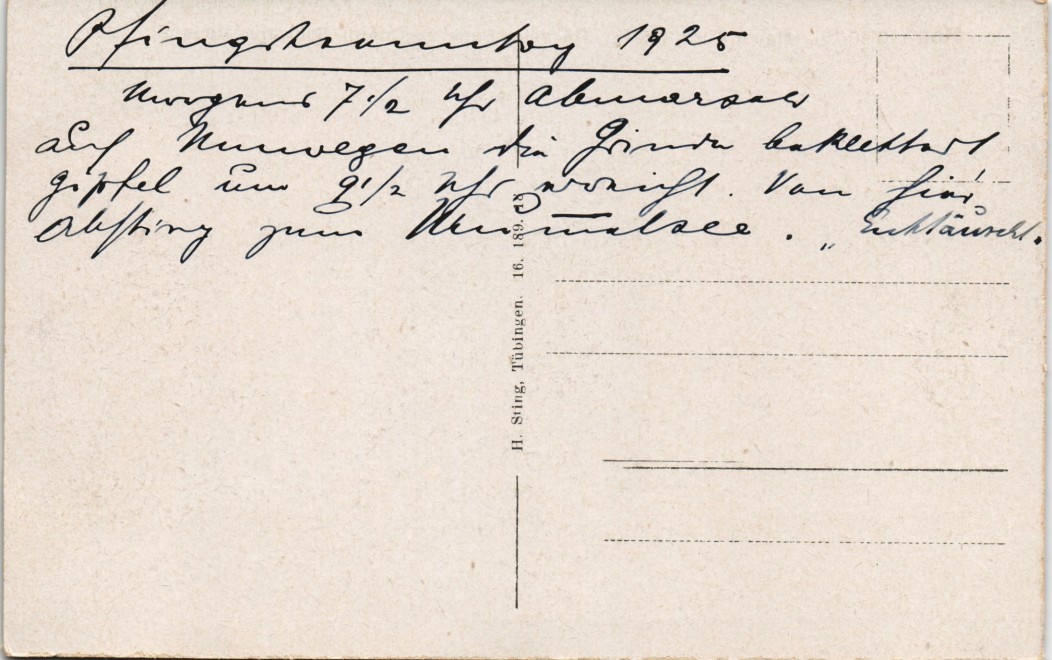 Pfingstsonntag 1925
Morgens 7 1/2 Uhr Abmarsch
auf Umwegen die Grinde beklettert
gipfel um 9 1/2 Uhr erreicht. Von hier
Abstieg zum Mummelsee. „Enttäuscht.
H. Sting, Tübingen. 16. 189. 18